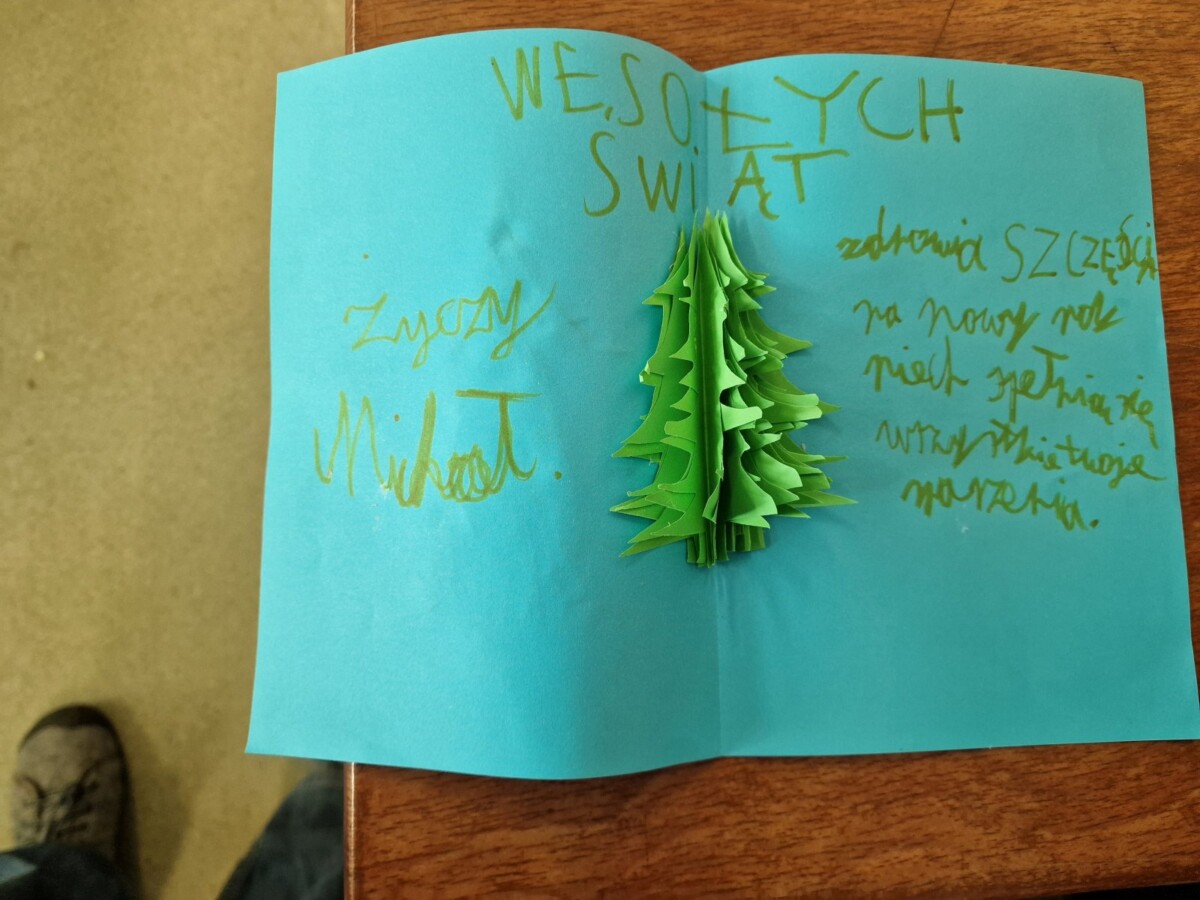 WESOŁYCH
ŚWiĄT
życzy
Michał.
zdrowia SZCZĘŚCIA
na nowy rok
niech spełnią się
wszystkie twoje
marzenia.